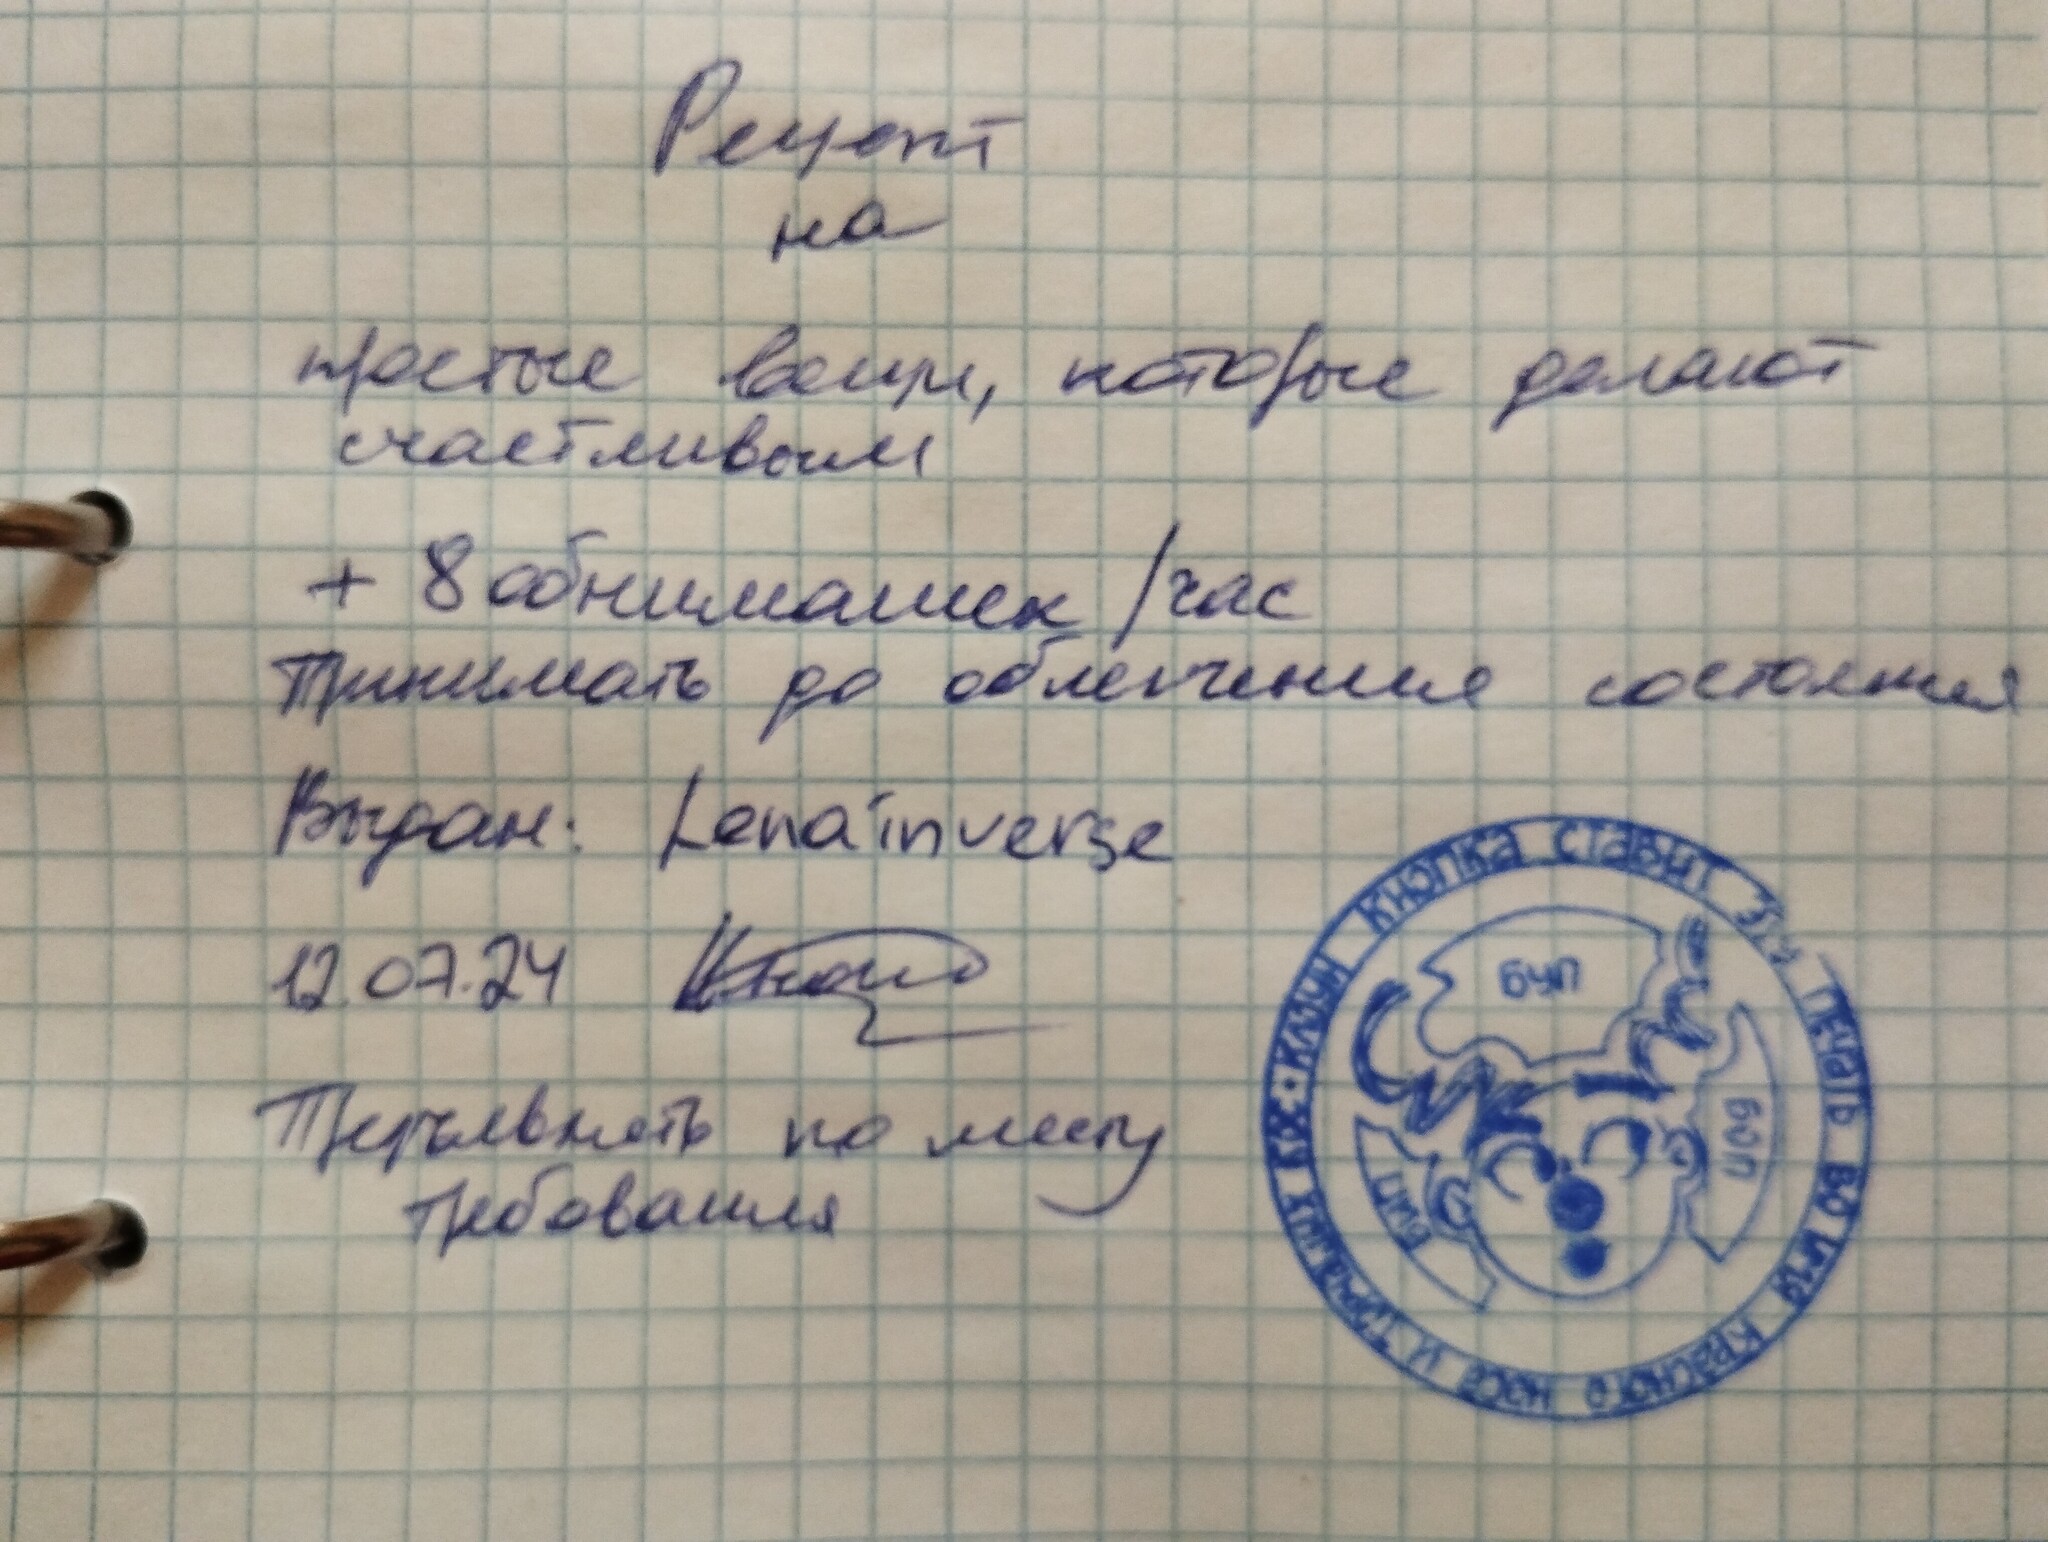 Рецепт
на
простые вещи, которые делают
счастливым
+ 8 обнимашек /час
Принимать до облегчения состояния
Выдан: Lenainverse
12.07.24
Предъявлять по месту
требования
КЛОУН КНОПКА СТАВИТ ЭТУ ПЕЧАТЬ ВО ИМЯ КРАСНОГО НОСА И ТОРЧАЩИХ
БУП
БОП
БИП